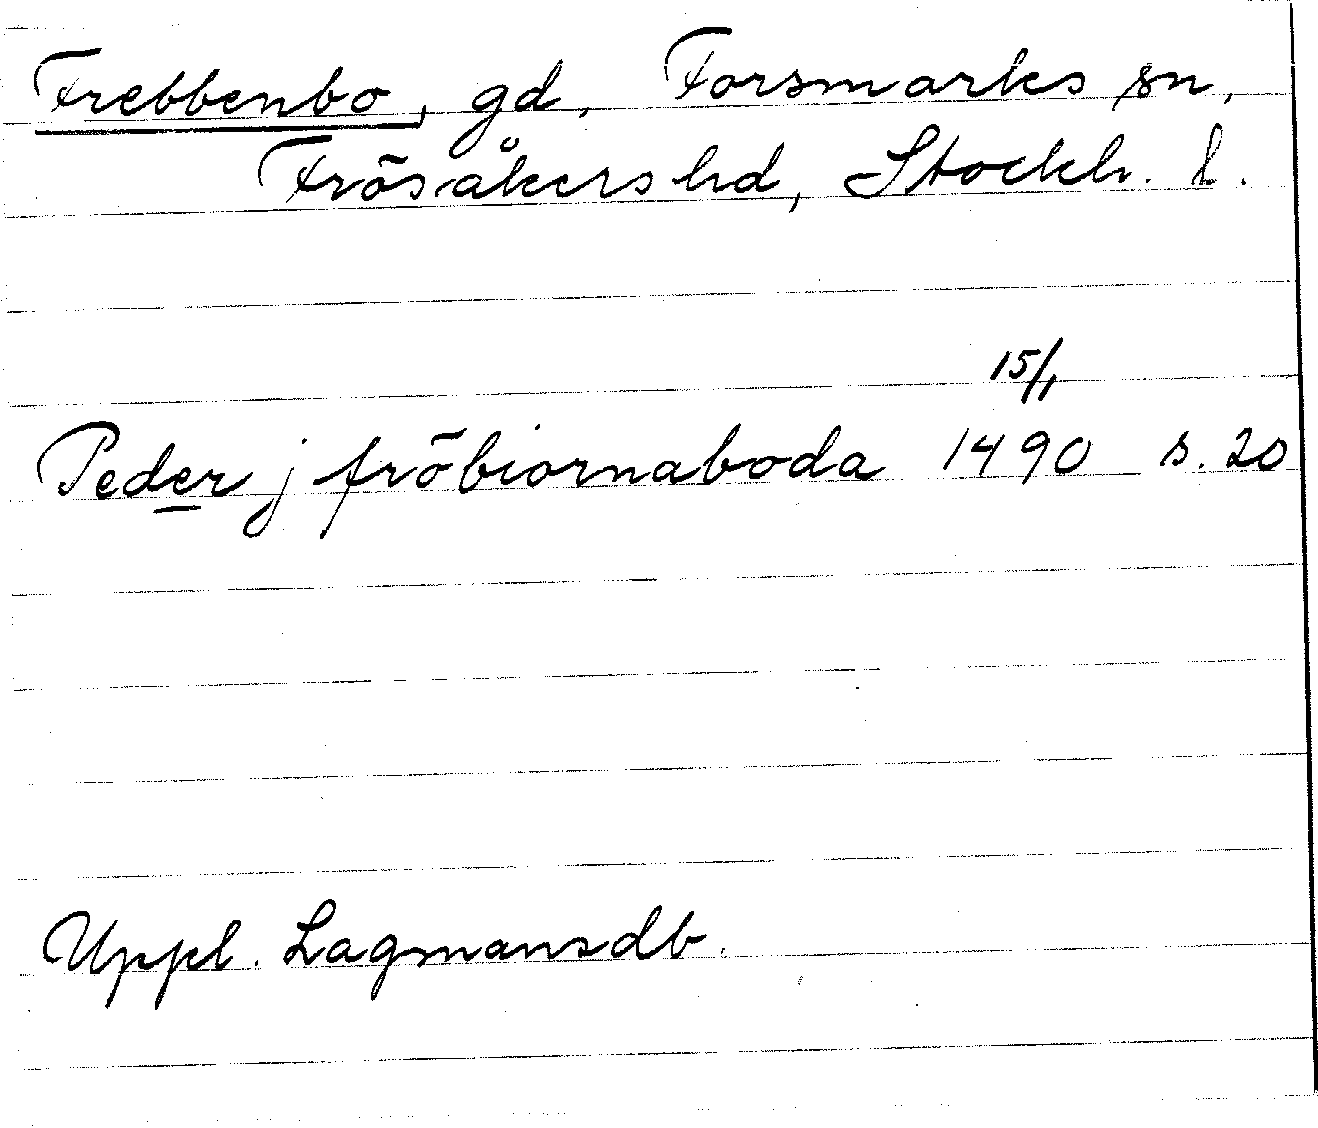 Frebbenbo, gd, Forsmarks sn,
Frösåkers hd, Stockh. l.
15/1
Peder j fröbiornaboda 1490 s. 20
Uppl. Lagmansdb.